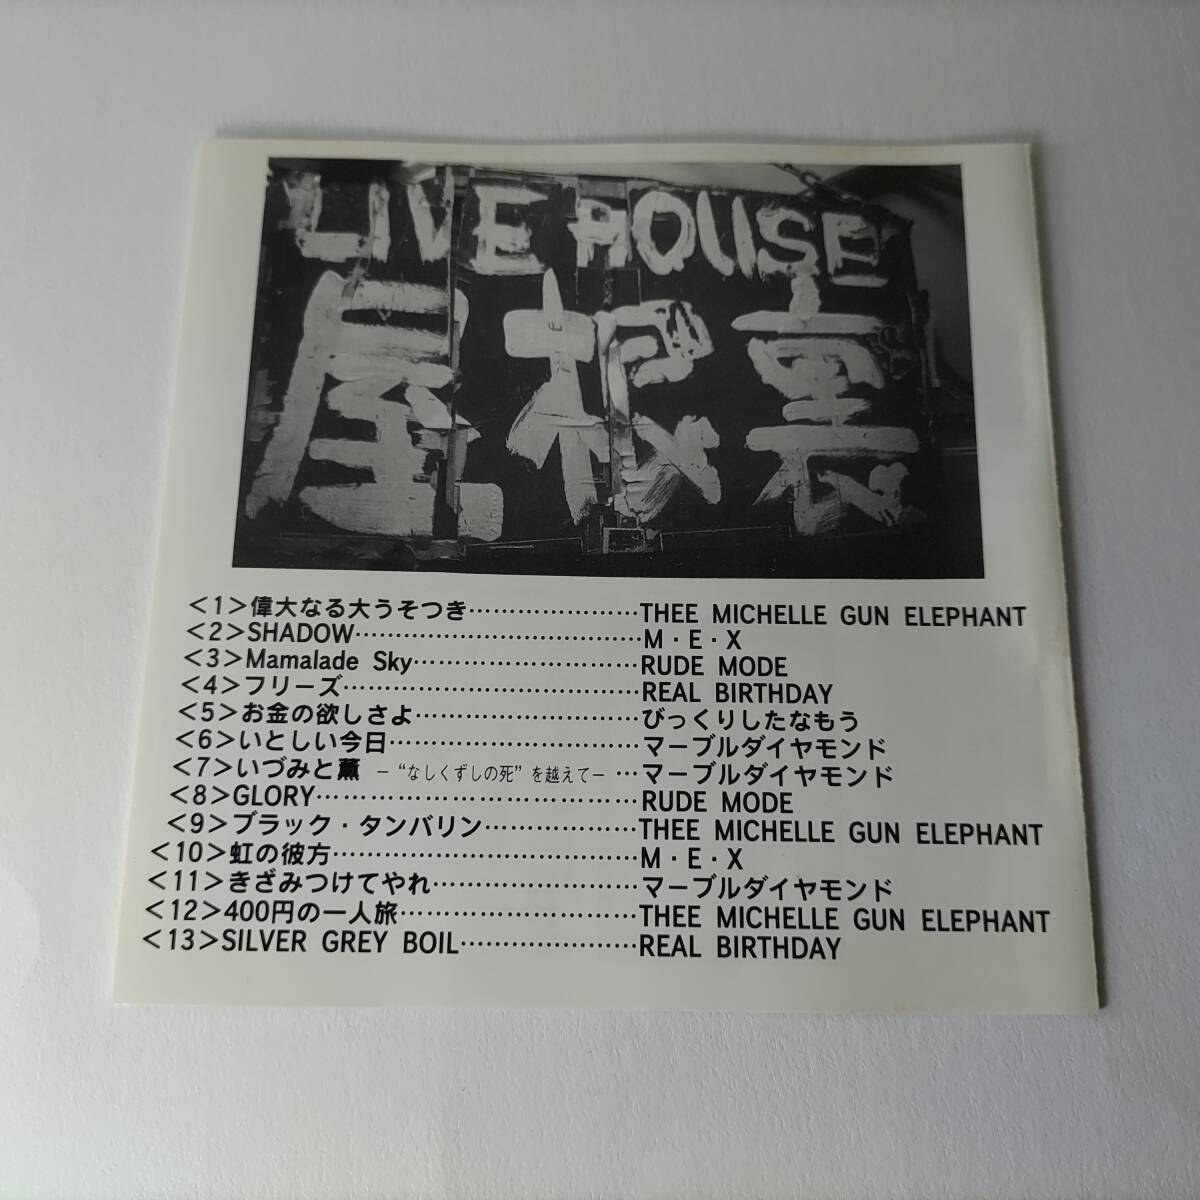 LIVE HOUSE
屋根裏
<1>偉大なる大うそつき…………………THEE MICHELLE GUN ELEPHANT
<2>SHADOW………………………………M・E・X
<3>Mamalade Sky………………………RUDE MODE
<4>フリーズ………………………………REAL BIRTHDAY
<5>お金の欲しさよ………………………びっくりしたなもう
<6>いとしい今日…………………………マーブルダイヤモンド
<7>いづみと薫 ―“なしくずしの死”を越えて― …マーブルダイヤモンド
<8>GLORY…………………………………RUDE MODE
<9>ブラック・タンバリン………………THEE MICHELLE GUN ELEPHANT
<10>虹の彼方………………………………M・E・X
<11>きざみつけてやれ……………………マーブルダイヤモンド
<12>400円の一人旅………………………THEE MICHELLE GUN ELEPHANT
<13>SILVER GREY BOIL…………………REAL BIRTHDAY